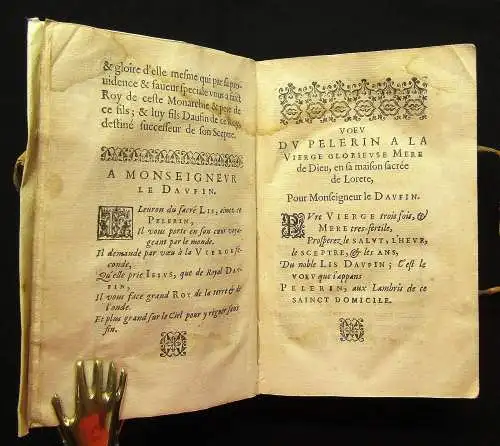 & gloire d'elle mesme qui par sa pro-
uidence & faueur speciale vous a faict
Roy de ceste Monarchie & pere de
ce fils; & luy fils Daufin de ce Roy,
destiné successeur de son Sceptre.
A MONSEIGNEVR
LE DAVFIN.
FLeuron du sacré LIS, aimez ce
PELERIN,
Il vous porte en son cœur voya-
geant par le monde.
Il demande par vœu à la VIERGE fe-
conde,
Qu'elle prie IESVS, que de Royal DAV-
FIN,
Il vous face grand ROY de la terre & de
l'onde.
Et plus grand sur le Ciel pour y regner sans
fin.
VOEV
DV PELERIN A LA
VIERGE GLORIEVSE MERE
de Dieu, en sa maison sacrée
de Lorete,
Pour Monseigneur le DAVFIN.
PVre VIERGE trois fois, &
MERE tres-fertile,
Prosperez le SALVT, L'HEVR,
le SCEPTRE, & les ANS,
Du noble LIS DAVFIN; C'est le
VOEV que t'appans
PELERIN, aux Lambris de ce
SAINCT DOMICILE.